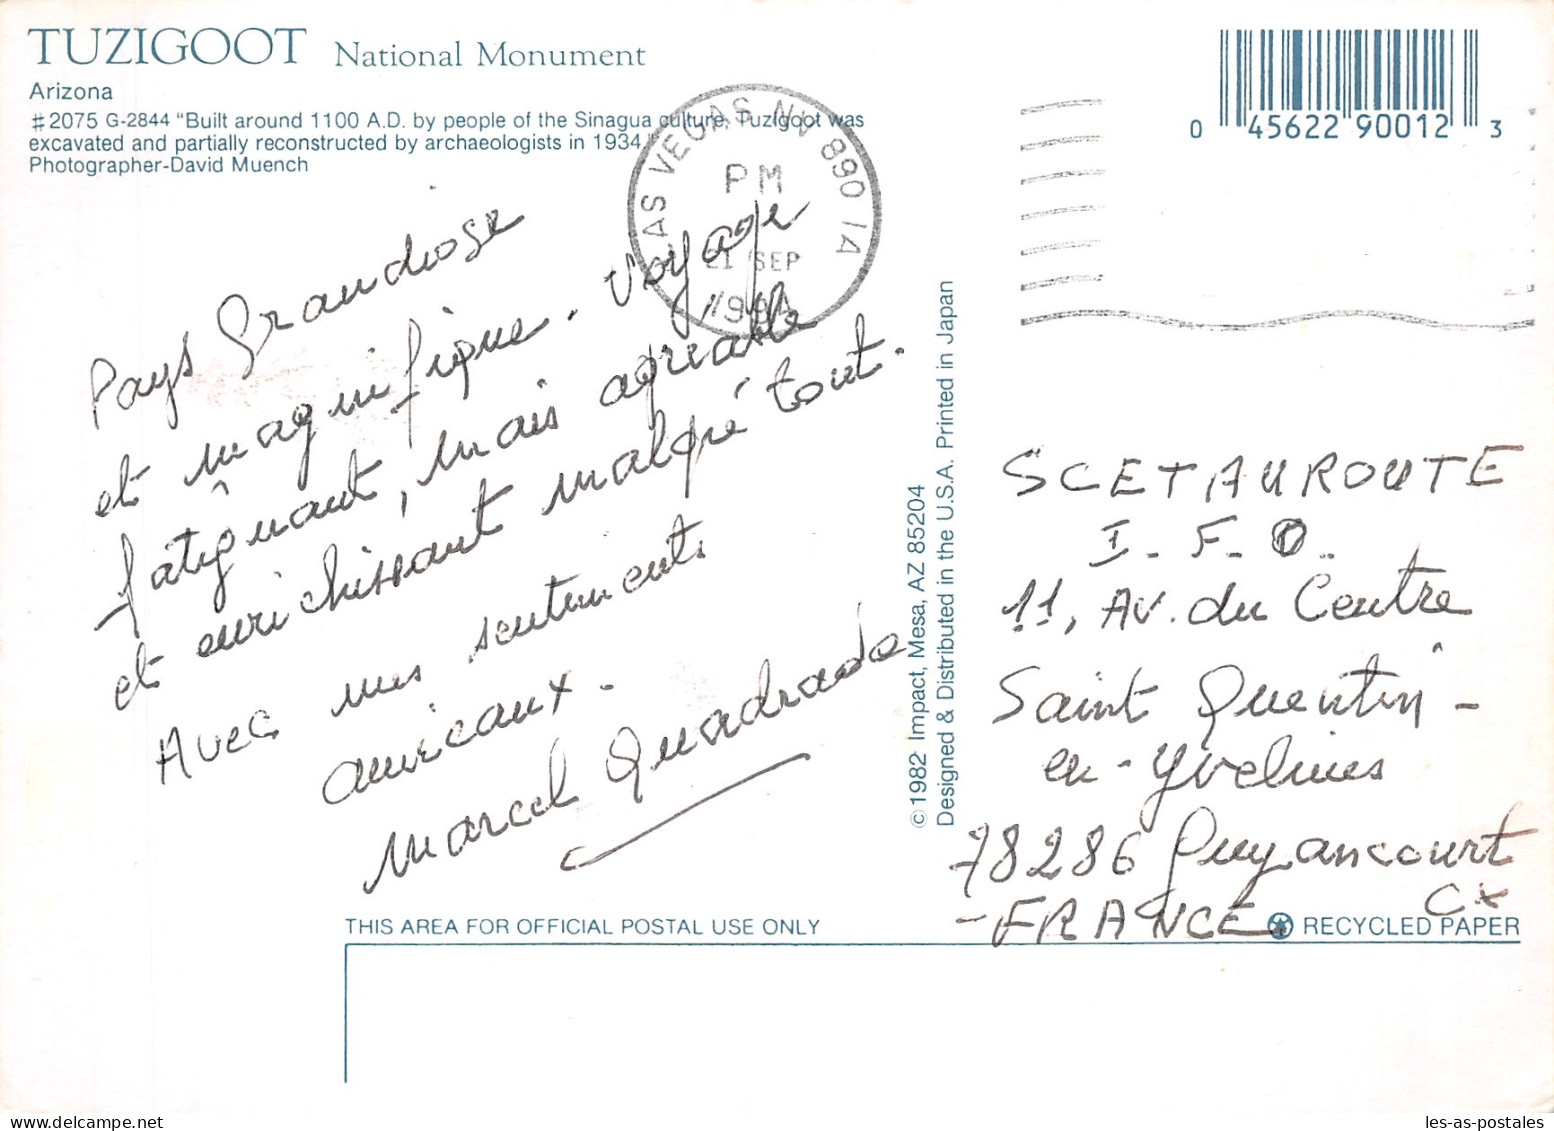 TUZIGOOT National Monument
Arizona
#2075 G-2844 "Built around 1100 A.D. by people of the Sinagua culture, Tuzigoot was
excavated and partially reconstructed by archaeologists in 1934."
Photographer-David Muench
0 45622 90012 3
LAS VEGAS NV 890 1A
PM
21 SEP
Pays Grandiose
et magnifique. Voyage
fatiguant, mais agréable
et enrichissant malgré tout.
Avec mes sentiments
américaux.
Marcel Quadrado
© 1982 Impact, Mesa, AZ 85204
Designed & Distributed in the U.S.A. Printed in Japan
SCETAUROUTE
I. F. O.
11, Av. du Centre
Saint Quentin -
en - Yvelines
78286 Guyancourt
Cx
- FRANCE
THIS AREA FOR OFFICIAL POSTAL USE ONLY
RECYCLED PAPER
les-as-postales